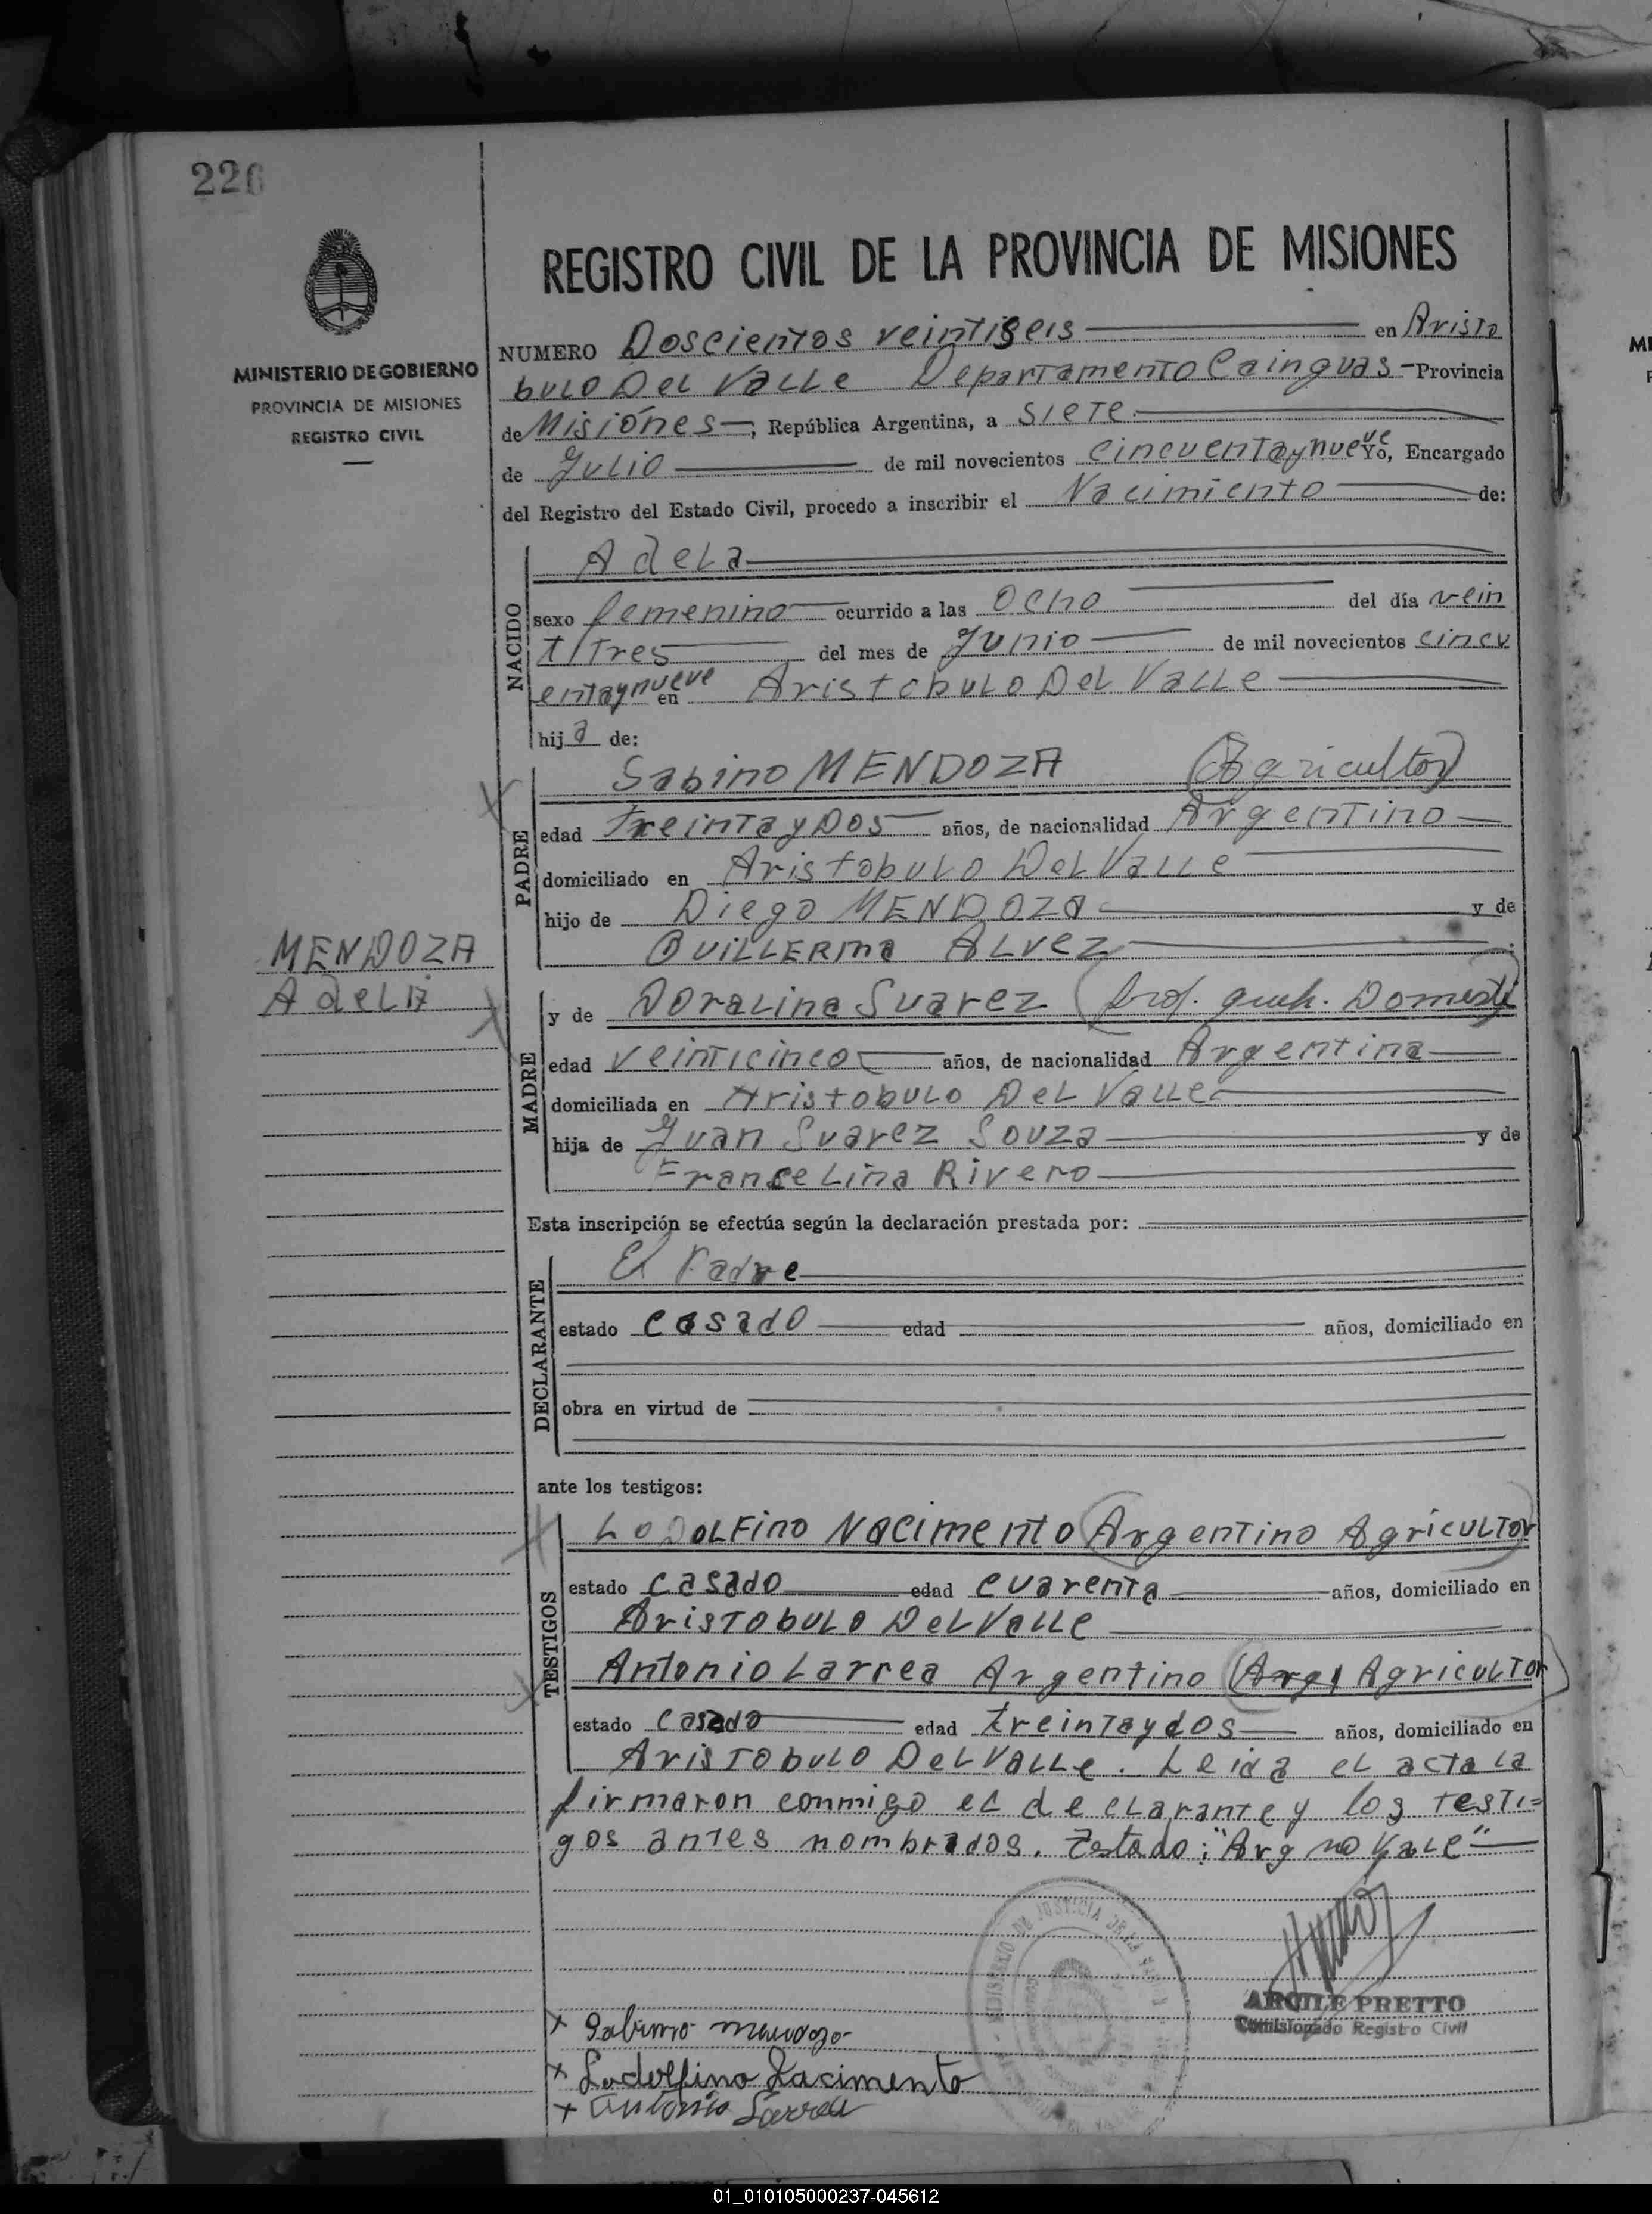 226
MINISTERIO DE GOBIERNO
PROVINCIA DE MISIONES
REGISTRO CIVIL
REGISTRO CIVIL DE LA PROVINCIA DE MISIONES
NUMERO Doscientos veintiseis en Aristo
bulo Del Valle Departamento Cainguas - Provincia
de Misiónes, República Argentina, a siete
de Julio de mil novecientos cincuentaynueve Yo, Encargado
del Registro del Estado Civil, procedo a inscribir el Nacimiento de:
NACIDO
Adela
sexo femenino ocurrido a las Ocho del día vein
titres del mes de Junio de mil novecientos cincu
entaynueve en Aristobulo Del Valle
hija de:
PADRE
Sabino MENDOZA (Agricultor)
edad treintaydos años, de nacionalidad Argentino
domiciliado en Aristobulo Del Valle
hijo de Diego MENDOZA y de
GUILLERMA ALVEZ.
MENDOZA
AdeLA
MADRE
y de Doralina Suarez (prof. queh. Domesti)
edad veinticinco años, de nacionalidad Argentina
domiciliada en Aristobulo Del Valle
hija de Juan Suarez Souza y de
Francelina Rivero
Esta inscripción se efectúa según la declaración prestada por:
DECLARANTE
El Padre
estado casado edad años, domiciliado en
obra en virtud de
ante los testigos:
TESTIGOS
LoDolfino Nacimento (Argentino Agricultor)
estado casado edad cuarenta años, domiciliado en
Aristobulo Del Valle
Antonio Larrea Argentino (Arg) Agricultor
estado casado edad treintaydos años, domiciliado en
Aristobulo Del Valle. Leida el acta la
firmaron conmigo el declarante y los testi=
gos antes nombrados. Testado: "Arg no vale"
MINISTERIO DE JUSTICIA DE LA
ARCILE PRETTO
Comisionado Registro Civil
x Sabino mendoza
x Lodolfino Nacimento
x Antonio Larrea
01_010105000237-045612